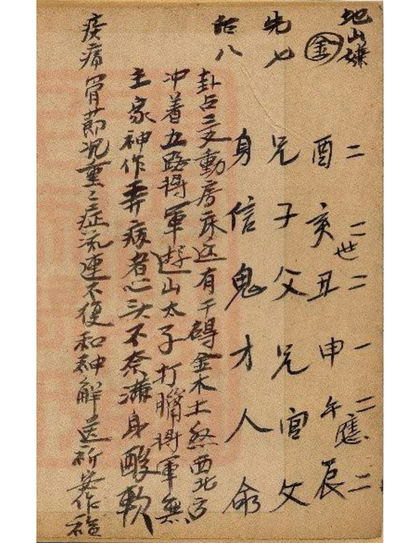 地山謙
二 二世 二 一 二應 二
金 酉 亥 丑 申 午 辰
先七 兄 子 父 兄 官 父
八 身 信 鬼 才 人 命
卦占三爻動房床近有干碍金木土煞西北方
冲着五路將軍遊山太子打腦將軍無
主家神作弄病者心头不奈滿身酸軟
疾痛骨節沉重之症流連不便和神解送祈安作